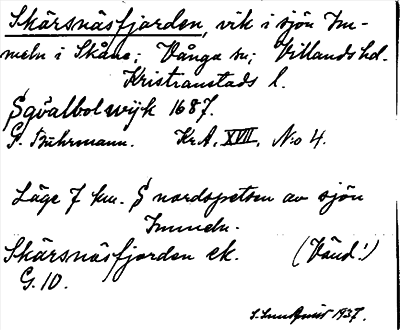 Skärsnäsfjorden, vik i sjön Im-
meln i Skåne; Vånga sn; Villands hd.
Kristianstads l.
Sgöalbolwijk 1687.
G. Buhrmann. Kr.A. XVII, N:o 4.
Läge 7 km. S nordspetsen av sjön
Immeln.
Skärsnäsfjorden ek. (Vänd!)
G. 10.
1937.